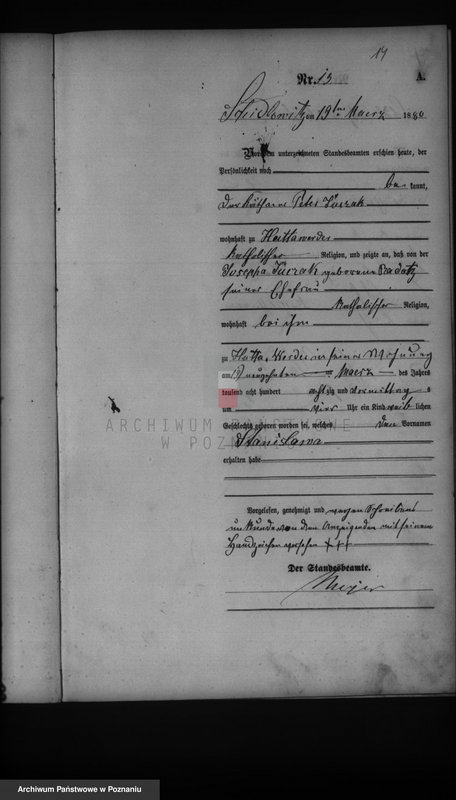 14
Nr. 13
A.
am 19ten Maerz 1880
Vor dem unterzeichneten Standesbeamten erschien heute, der
Persönlichkeit nach
be kannt,
der Käthner Peter
wohnhaft zu
katholischer Religion, und zeigte an, daß von der
Josepha geborene
seiner Ehefrau
katholischer Religion,
wohnhaft bei ihm
zu in seiner Wohnung
am neunzehnten Maerz des Jahres
tausend acht hundert achtzig und Vormittag s
um vier Uhr ein Kind weib lichen
Geschlechts geboren worden sei, welches den Vornamen
Stanislawa
erhalten habe
Vorgelesen, genehmigt und wegen Schreibens
unkunde von dem Anzeigenden mit seinem
Handzeichen versehen +++
Der Standesbeamte.
Meyer
ARCHIWUM PAŃSTWOWE
W POZNANIU
Archiwum Państwowe w Poznaniu